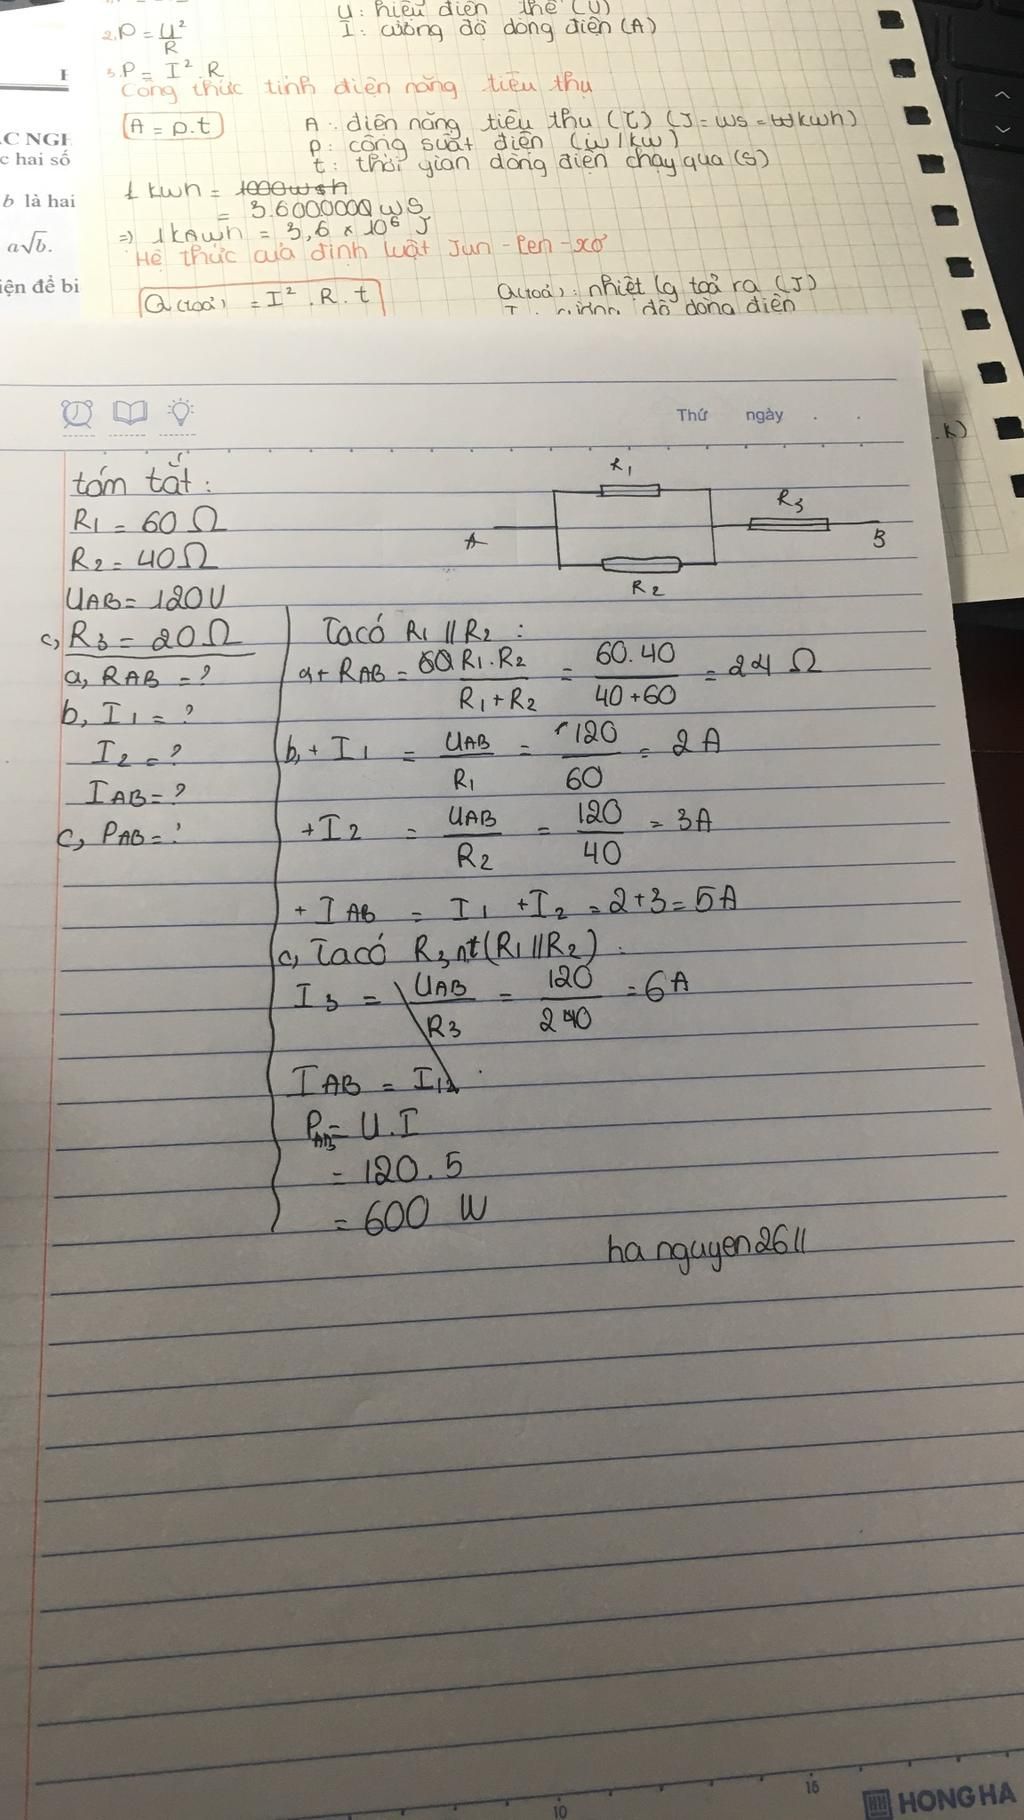 U: hiệu điện thế (U)
2. P = U²/R
I: cường độ dòng điện (A)
3. P = I². R
Công thức tính điện năng tiêu thụ
A = p.t
A: điện năng tiêu thụ (J = ws = kwh)
p: công suất điện (w/kw)
t: thời gian dòng điện chạy qua (s)
1 kwh =
= 3.6000000 ws
=> 1kAwh = 3,6 x 10⁶ J
Hệ thức của định luật Jun - Len - xơ
Q(toả) = I² . R . t
Q(toả): nhiệt lg toả ra (J)
I: cường độ dòng điện
C NGH
c hai số
b là hai
a√b.
iện để bi
.k)
Thứ ngày . .
tóm tắt:
R1 = 60 Ω
R2 = 40Ω
UAB = 120V
c, R3 = 20Ω
a, RAB = ?
b, I1 = ?
I2 = ?
IAB = ?
c, PAB = ?
R1
R3
A
B
R2
Ta có R1 // R2 :
a + RAB = R1.R2 / R1 + R2 = 60.40 / 40+60 = 24 Ω
b, + I1 = UAB / R1 = 120 / 60 = 2 A
+ I2 = UAB / R2 = 120 / 40 = 3A
+ IAB = I1 + I2 = 2+3 = 5A
c, Ta có R3 nt (R1 // R2) :
I3 = UAB / R3 = 120 / 20 = 6A
IAB = I12
PAB = U.I
= 120.5
= 600 W
ha nguyen2611
10
15
HONG HA